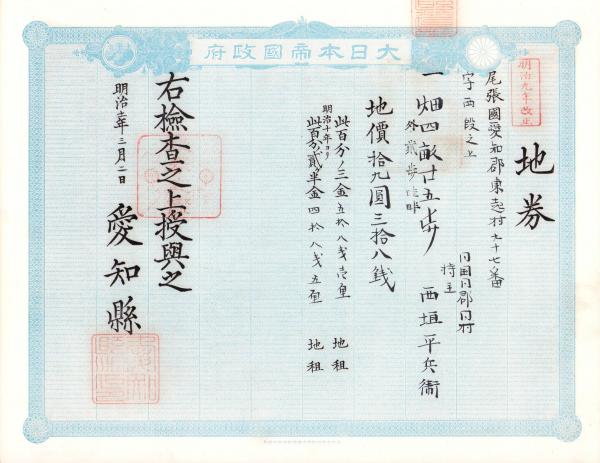 大日本帝國政府
明治九年改正
地券
尾張國愛知郡東起村七十七番
字西段之上
同国同郡同村
持主
一畑四畝廿五歩 西垣平兵衞
外貳歩畦畔
地價拾九圓三拾八銭
此百分ノ三金五拾八戋壱厘 地租
明治十年ヨリ
此百分ノ貳半金四拾八戋五厘 地租
右檢查之上授與之
明治 年三月二日
愛知縣